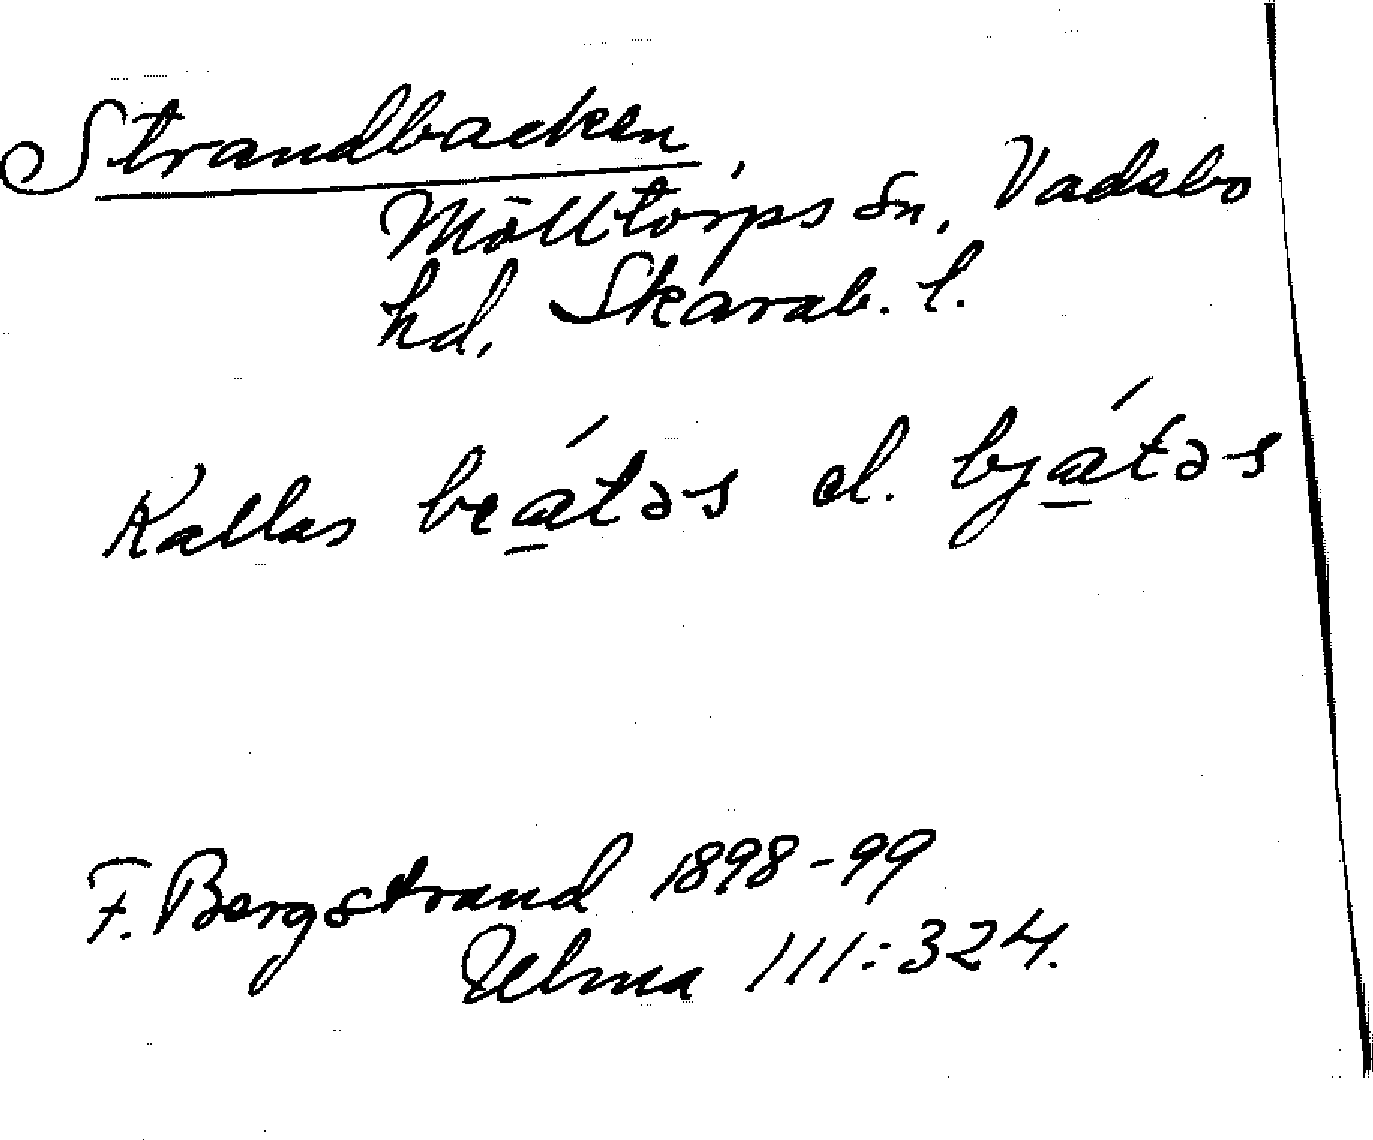 Strandbacken,
Mölltorps sn, Vadsbo
hd, Skarab. l.
Kallas beátəs el. bjátəs
F. Bergstrand 1898-99
Ulma 111:324.